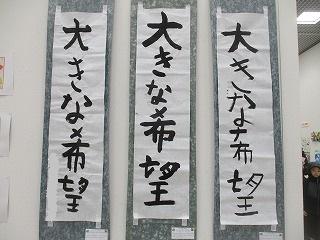 大きな希望
大きな希望
大きな希望